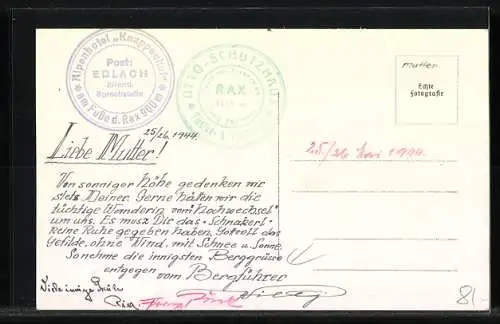 Alpenhotel „Knappenhof"
Post:
EDLACH
Sprechstelle
am Fuße d. Rax 900 m
OTTO-SCHUTZHAUS
RAX
Mutter
Echte
Fotografie
25/26. 1944.
Liebe Mutter!
25/26 1944.
Von sonniger Höhe gedenken wir
stets Deiner. Gerne hätten wir die
tüchtige Wanderin vom Hochwechsel
um uns. Es muss Dir das „Schnakerl"
keine Ruhe gegeben haben. Gotvoll das
Gefilde, ohne Wind, mit Schnee u. Sonne.
So nehme die innigsten Berggrüsse
entgegen
vom Bergführer
Viele innige
81.-